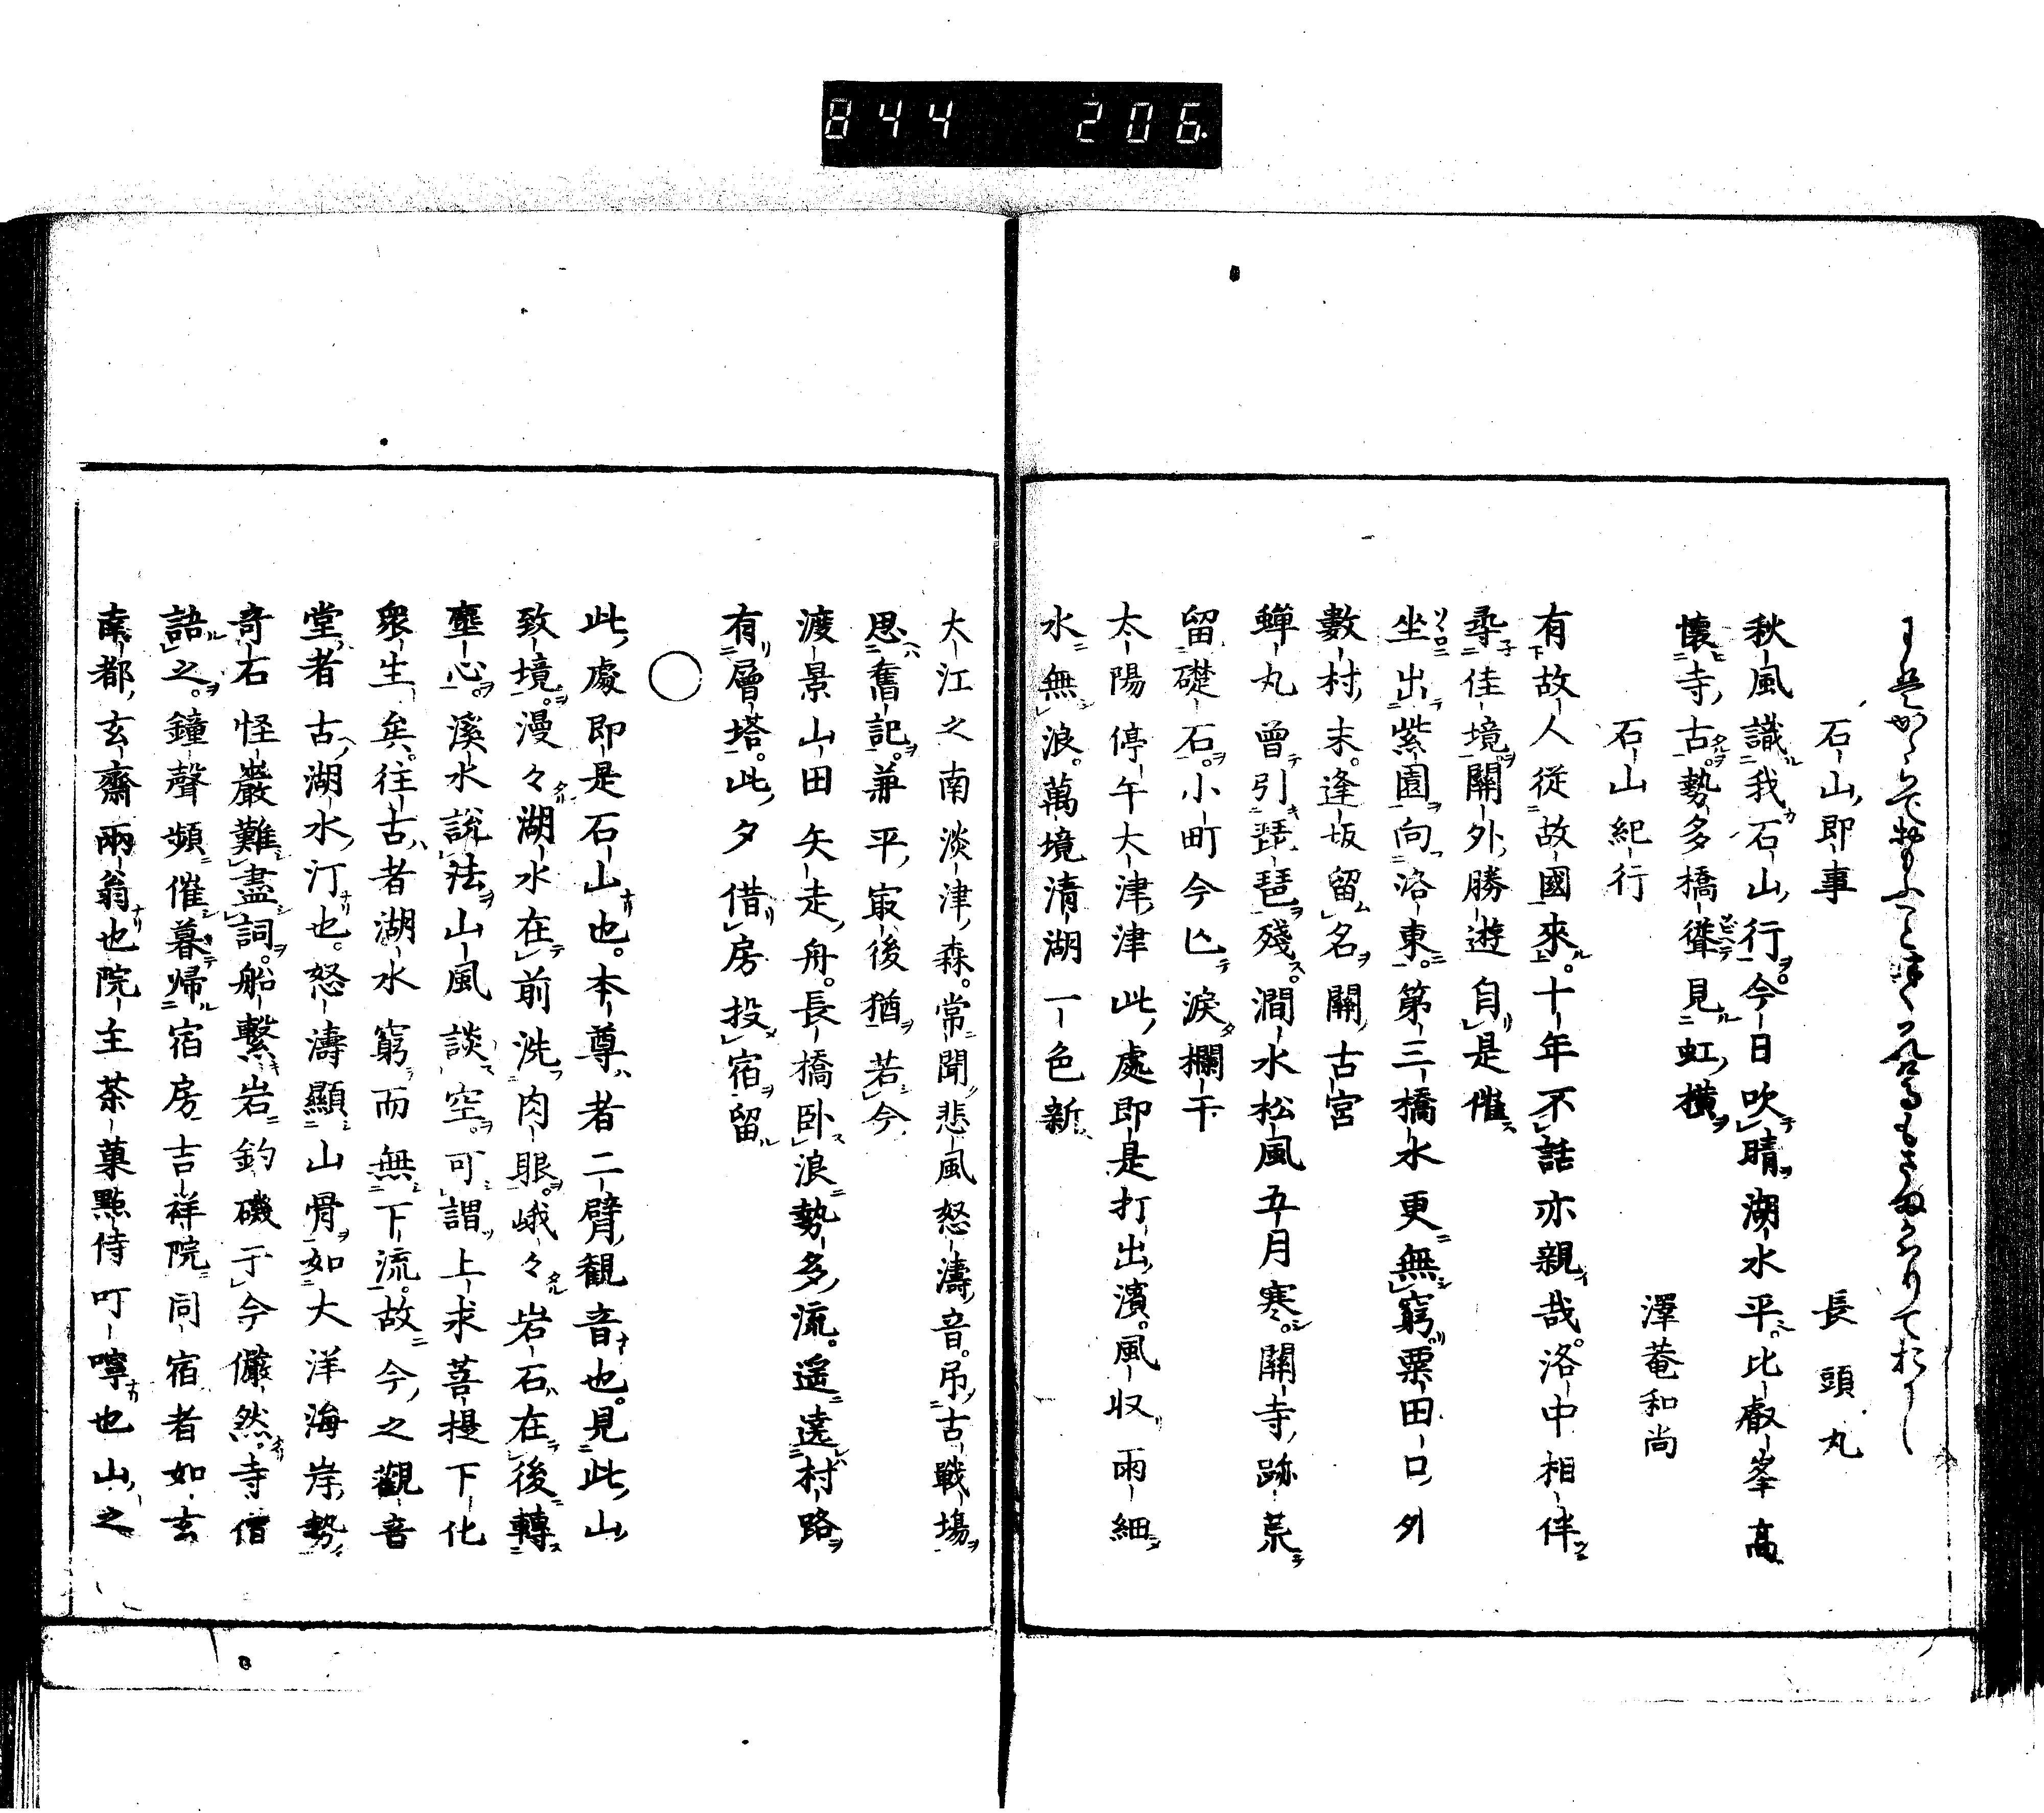 844 206
石山即事 長頭丸
秋風識我石山行今日吹晴湖水平比叡峯高
懷寺古勢多橋聳見虹橫
石山紀行
澤菴和尚
有故人從故國來十年不話亦親哉洛中相伴
尋佳境關外勝遊自是催
坐出紫園向洛東第三橋水更無窮粟田口外
數村末逢坂留名關古宮
蟬丸曾引琵琶殘澗水松風五月寒關寺跡荒
留礎石小町今亡淚欄干
太陽停午大津津此處即是打出濱風収雨細
水無浪萬境清湖一色新
大江之南淡津森常聞悲風怒濤音吊古戰場
思舊記兼平㝡後猶若今
渡景山田矢走舟長橋卧浪勢多流遥遶村路
有層塔此夕借房投宿留
○
此處即是石山也本尊者二臂觀音也見此山
致境漫々湖水在前洗肉眼峨々岩石在後轉
塵心溪水說法山風談空可謂上求菩提下化
衆生矣往古者湖水窮而無下流故今之觀音
堂者古湖水汀也怒濤顯山骨如大洋海岸勢
奇石怪巖難盡詞船繫岩釣磯于今儼然寺僧
語之鐘聲頻催暮歸宿房吉祥院同宿者如玄
南都玄齋兩翁也院主茶菓點侍叮嚀也山之